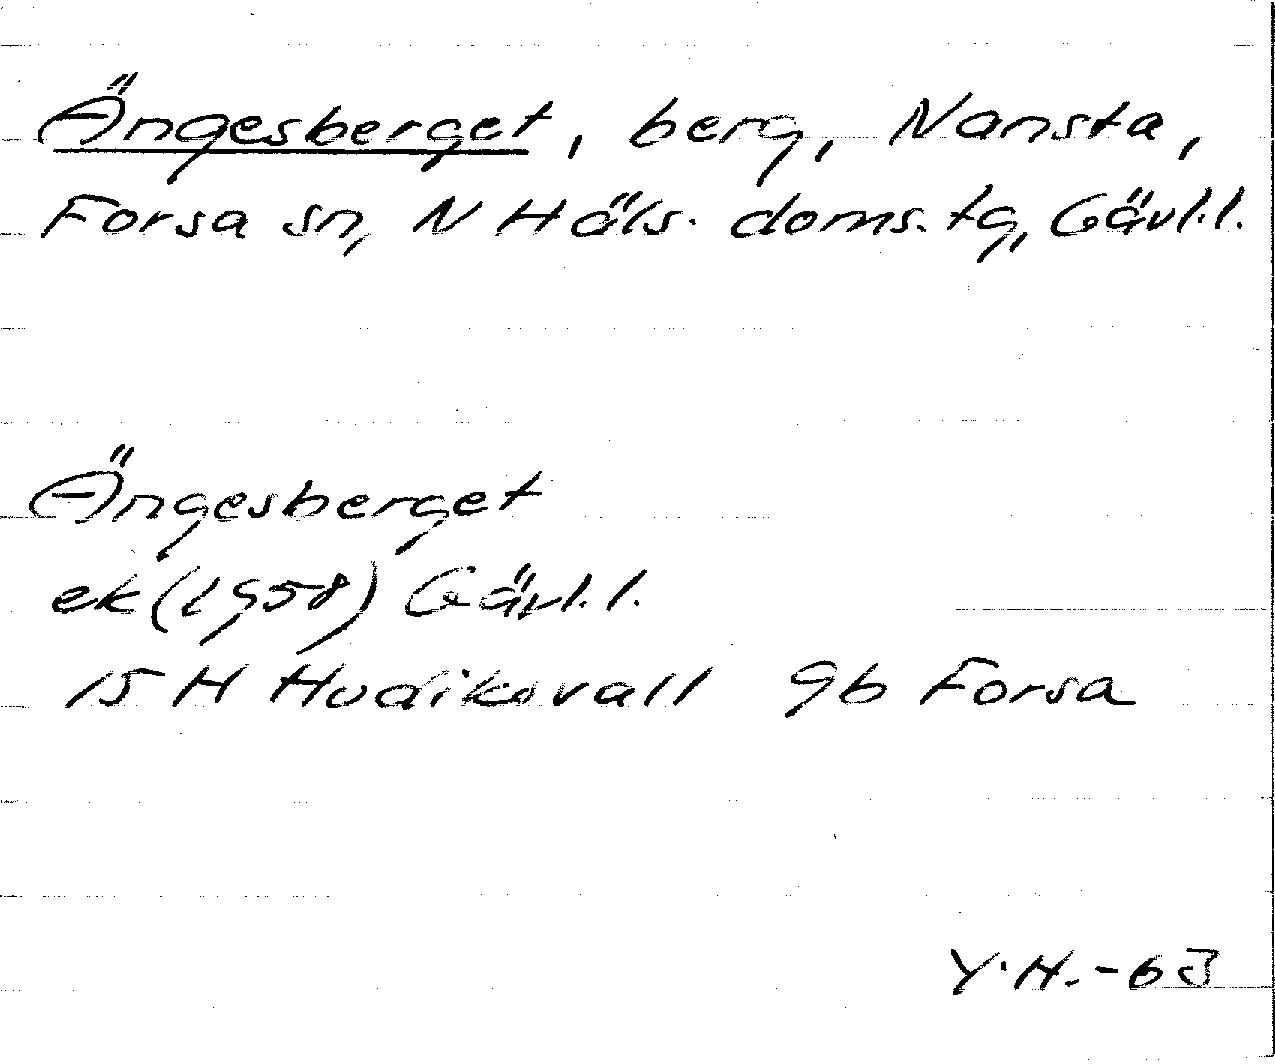 Ängesberget, berg, Nansta,
Forsa sn, N Häls. doms. tg, Gävl.l.
Ängesberget
ek (1958) Gävl.l.
15 H Hudiksvall 9b Forsa
Y.H.-63